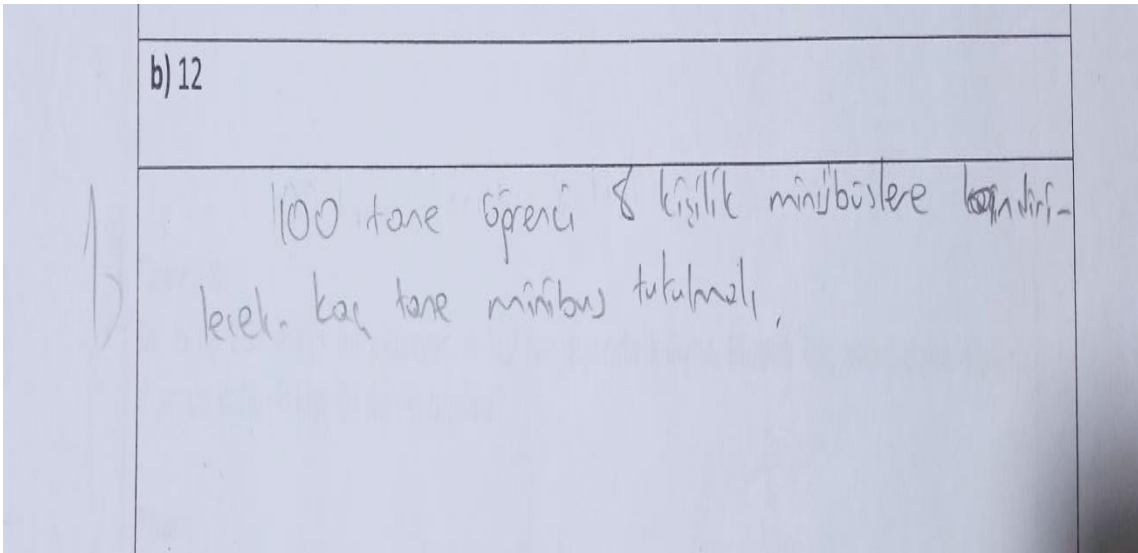 b) 12
100 tane öğrenci 8 kişilik minibüslere bindiri-
lecek. kaç tane minibüs tutulmalı,